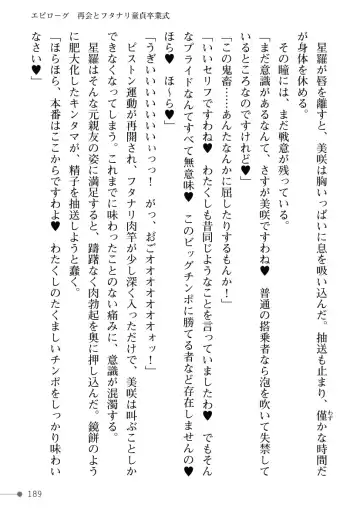 エピローグ　再会とフタナリ童貞卒業式
　星羅が唇を離すと、美咲は胸いっぱいに息を吸い込んだ。抽送も止まり、僅かな時間だ
が身体を休める。
　その瞳には、まだ戦意が残っている。
「まだ意識があるなんて、さすが美咲ですわね♥　普通の搭乗者なら泡を吹いて失禁して
いるところなのですけれど♥」
「この鬼畜……あんたなんかに屈したりするもんか！」
「いいセリフですわね♥　わたくしも昔同じようなことを言っていましたわ♥　でもそん
なプライドなんてすべて無意味♥　このビッグチンポに勝てる者など存在しませんの♥
ほら♥　ほ～ら♥」
「うぎいいいいいいぃっっ！　がっ、おごオオオオオオオォッ！」
　ピストン運動が再開され、フタナリ肉竿が少し深く入っただけで、美咲は叫ぶことしか
できなくなってしまう。これまでに味わったことのない痛みに、意識が混濁する。
　星羅は元親友の姿に満足すると、躊躇なく肉勃起を奥に押し込んだ。鏡餅のよう
に肥大化したキンタマが、精子を抽送しようと蠢く。
「ほらほら、本番はここからですわよ♥　わたくしのたくましいチンポをしっかり味わい
なさい♥」
189